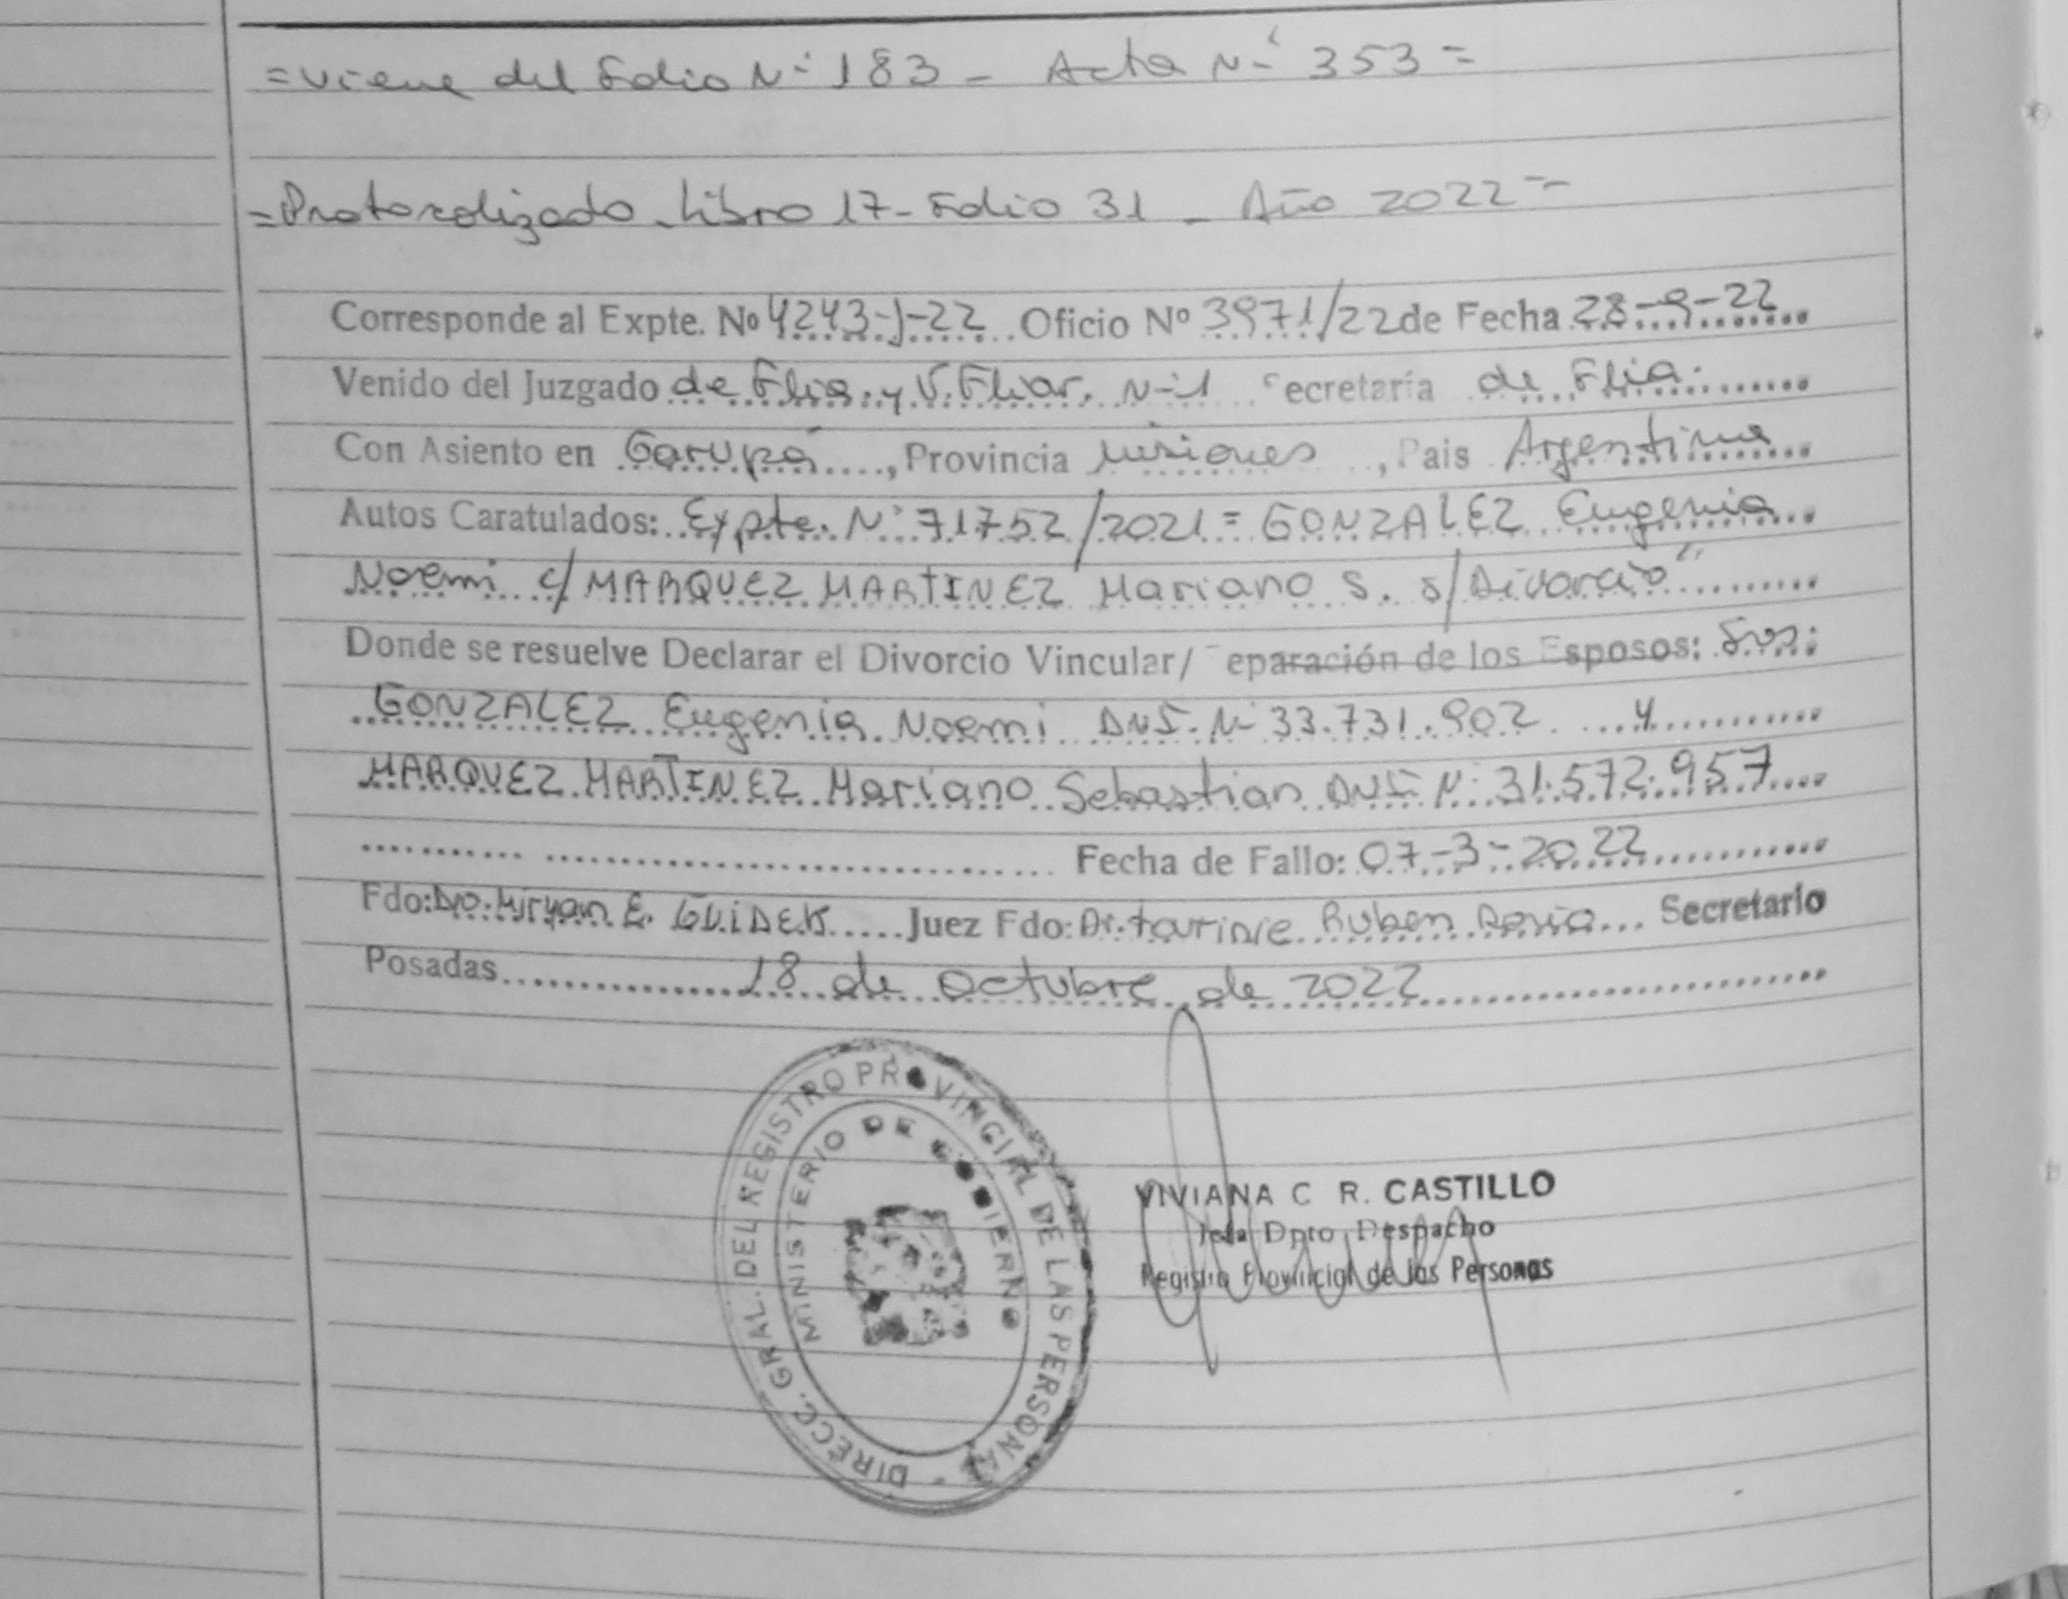 = Viene del Folio N° 183 - Acta N° 353 =
= Protocolizado - Libro 17 - Folio 31 - Año 2022 =
Corresponde al Expte. Nº 4243-J-22 Oficio Nº 3971/22 de Fecha 28-9-22
Venido del Juzgado de Flia. y V. Fliar. N-1 Secretaría de Flia.
Con Asiento en Garupá, Provincia Misiones, Pais Argentina
Autos Caratulados: Expte. N° 71752/2021 = GONZALEZ Eugenia
Noemi c/ MARQUEZ MARTINEZ Mariano S. s/ Divorcio"
Donde se resuelve Declarar el Divorcio Vincular/ Separación de los Esposos: Sres:
GONZALEZ Eugenia Noemi DNI. N- 33.731.902 y
MARQUEZ MARTINEZ Mariano Sebastian DNI N° 31.572.957
Fecha de Fallo: 07-3-2022
Fdo: Dra. Miryan E. Juez Fdo: Dr. Ruben Secretario
Posadas 18 de octubre de 2022
DIRECC. GRAL. DEL REGISTRO PROVINCIAL DE LAS PERSONAS
MINISTERIO DE GOBIERNO
VIVIANA C R. CASTILLO
Jefa Dpto Despacho
Registro Provincial de las Personas